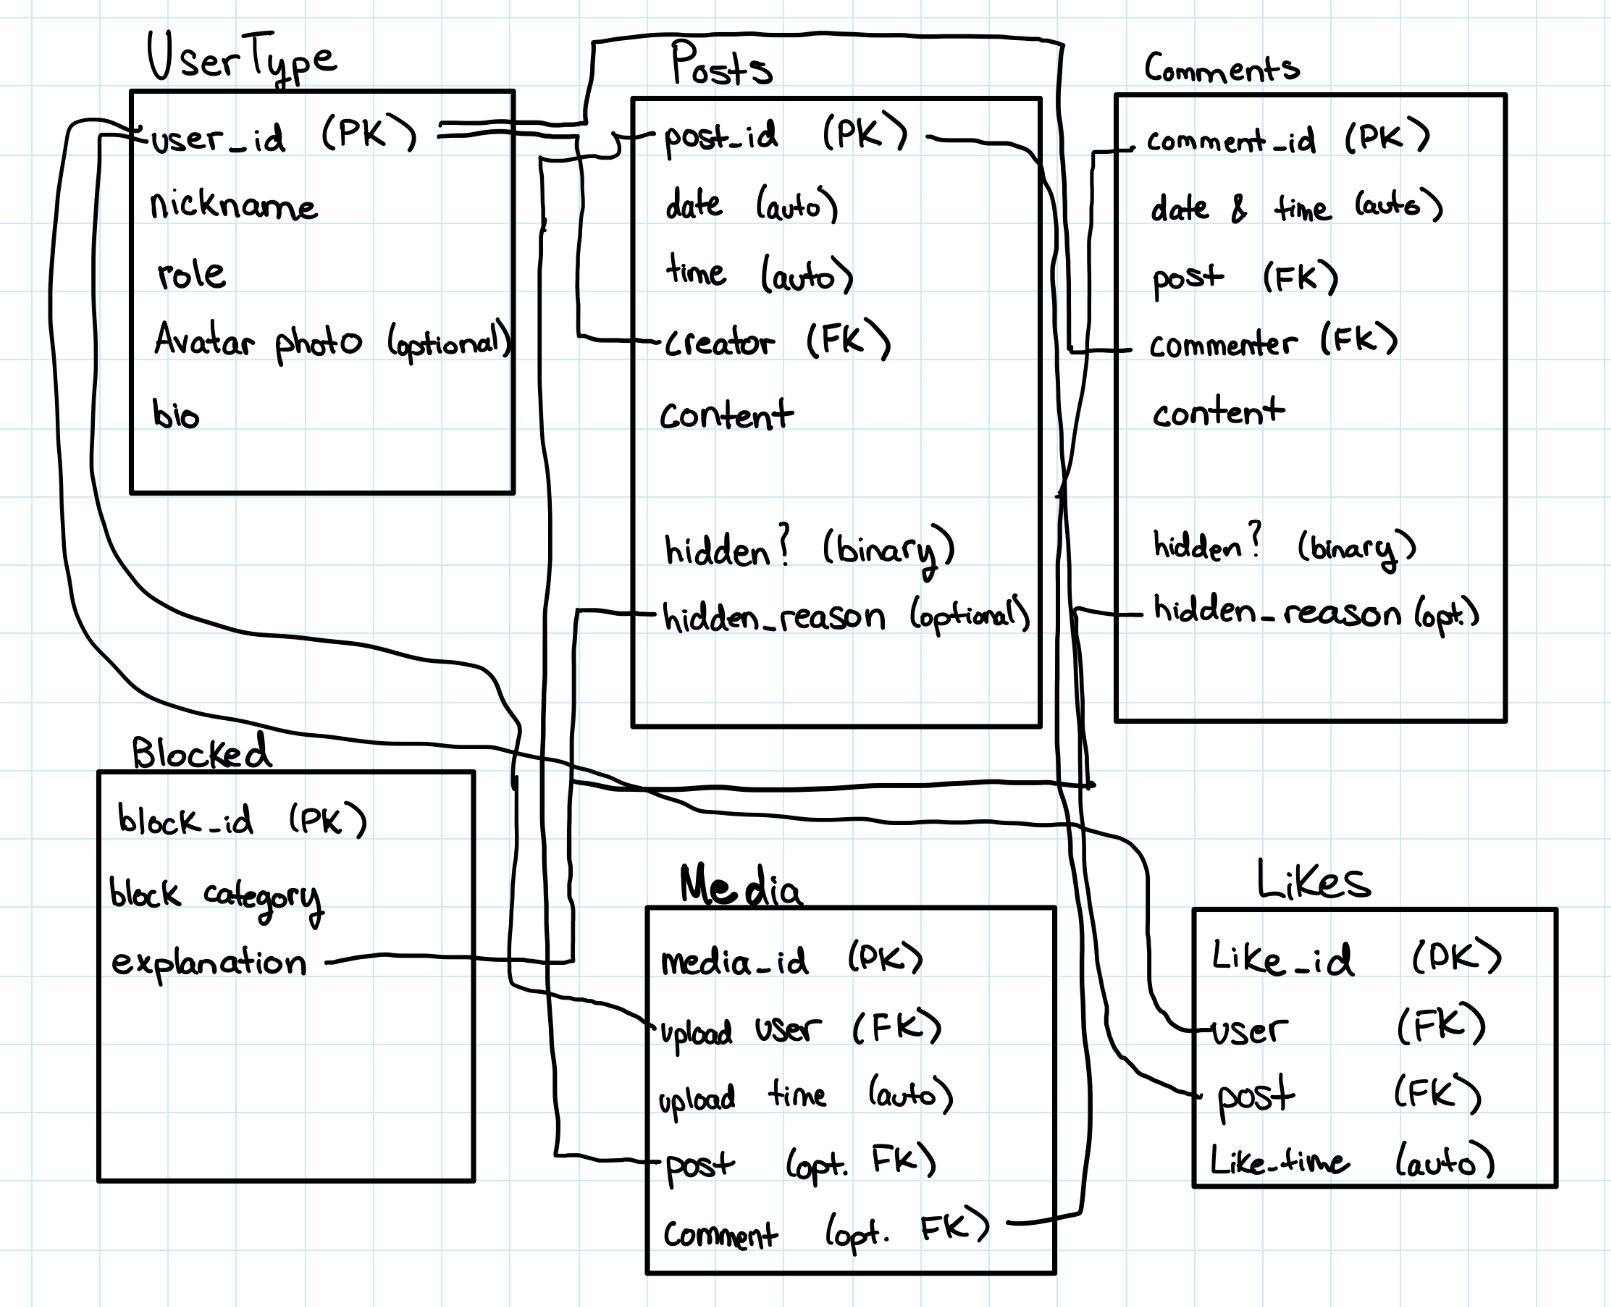 UserType
user_id (PK)
nickname
role
Avatar photo (optional)
bio
Posts
post_id (PK)
date (auto)
time (auto)
creator (FK)
content
hidden? (binary)
hidden_reason (optional)
Comments
comment_id (PK)
date & time (auto)
post (FK)
commenter (FK)
content
hidden? (binary)
hidden_reason (opt.)
Blocked
block_id (PK)
block category
explanation
Media
media_id (PK)
upload user (FK)
upload time (auto)
post (opt. FK)
comment (opt. FK)
Likes
Like_id (PK)
user (FK)
post (FK)
Like-time (auto)